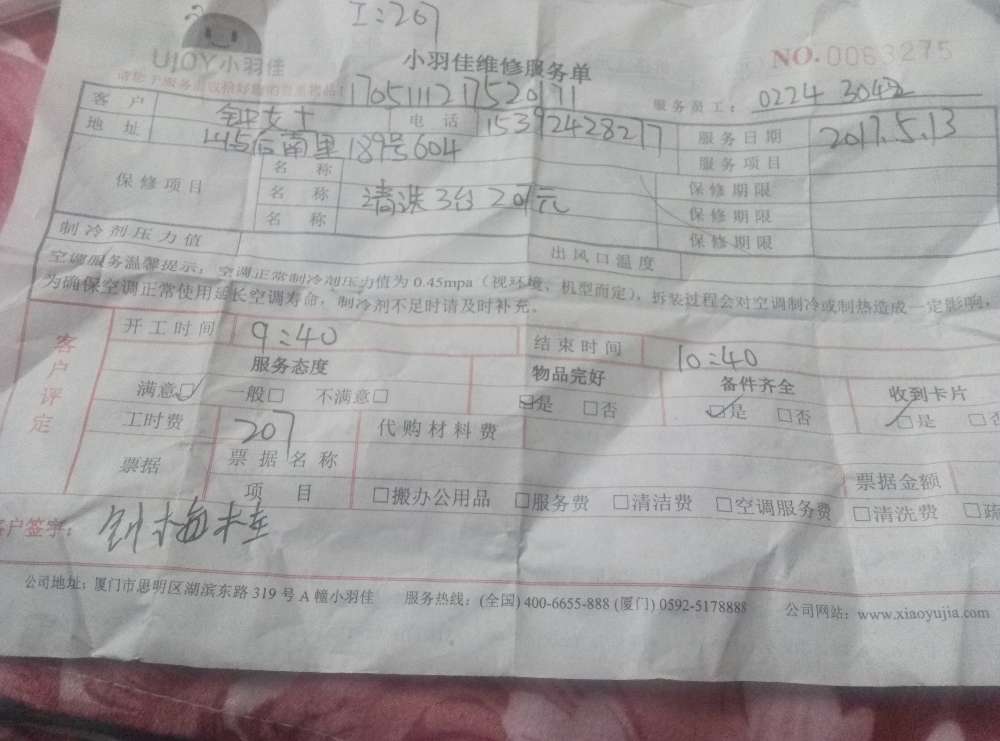 I:207
UJOY小羽佳
小羽佳维修服务单
NO.0083275
1705111217520171
服务员工: 0224 3042
客 户 钟女士 电 话 15392428277 服务日期 2017.5.13
地 址 后南里189号604 服务项目
保修项目 名 称 保修期限
名 称 清洗3台 207元 保修期限
名 称 保修期限
制冷剂压力值 出风口温度
空调服务温馨提示:空调正常制冷剂压力值为0.45mpa(视环境、机型而定),拆装过程会对空调制冷或制热造成一定影响,
为确保空调正常使用延长空调寿命,制冷剂不足时请及时补充。
客户评定
开工时间 9:40 结束时间 10:40
服务态度 物品完好 备件齐全 收到卡片
满意☑ 一般□ 不满意□ ☑是 □否 ☑是 □否 ☑是 □否
工时费 207 代购材料费
票据 票据名称 票据金额
项 目 □搬办公用品 □服务费 □清洁费 □空调服务费 □清洗费 □疏
客户签字: 钟梅桂
公司地址:厦门市思明区湖滨东路319号A幢小羽佳 服务热线:(全国) 400-6655-888 (厦门) 0592-5178888 公司网站:www.xiaoyujia.com